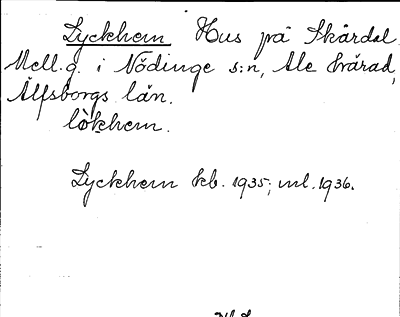 Lyckhem Hus på Skårdal
Mell.g. i Nödinge s:n, Ale härad,
Älfsborgs län.
lòkhem.
Lyckhem kb. 1935; ml. 1936.